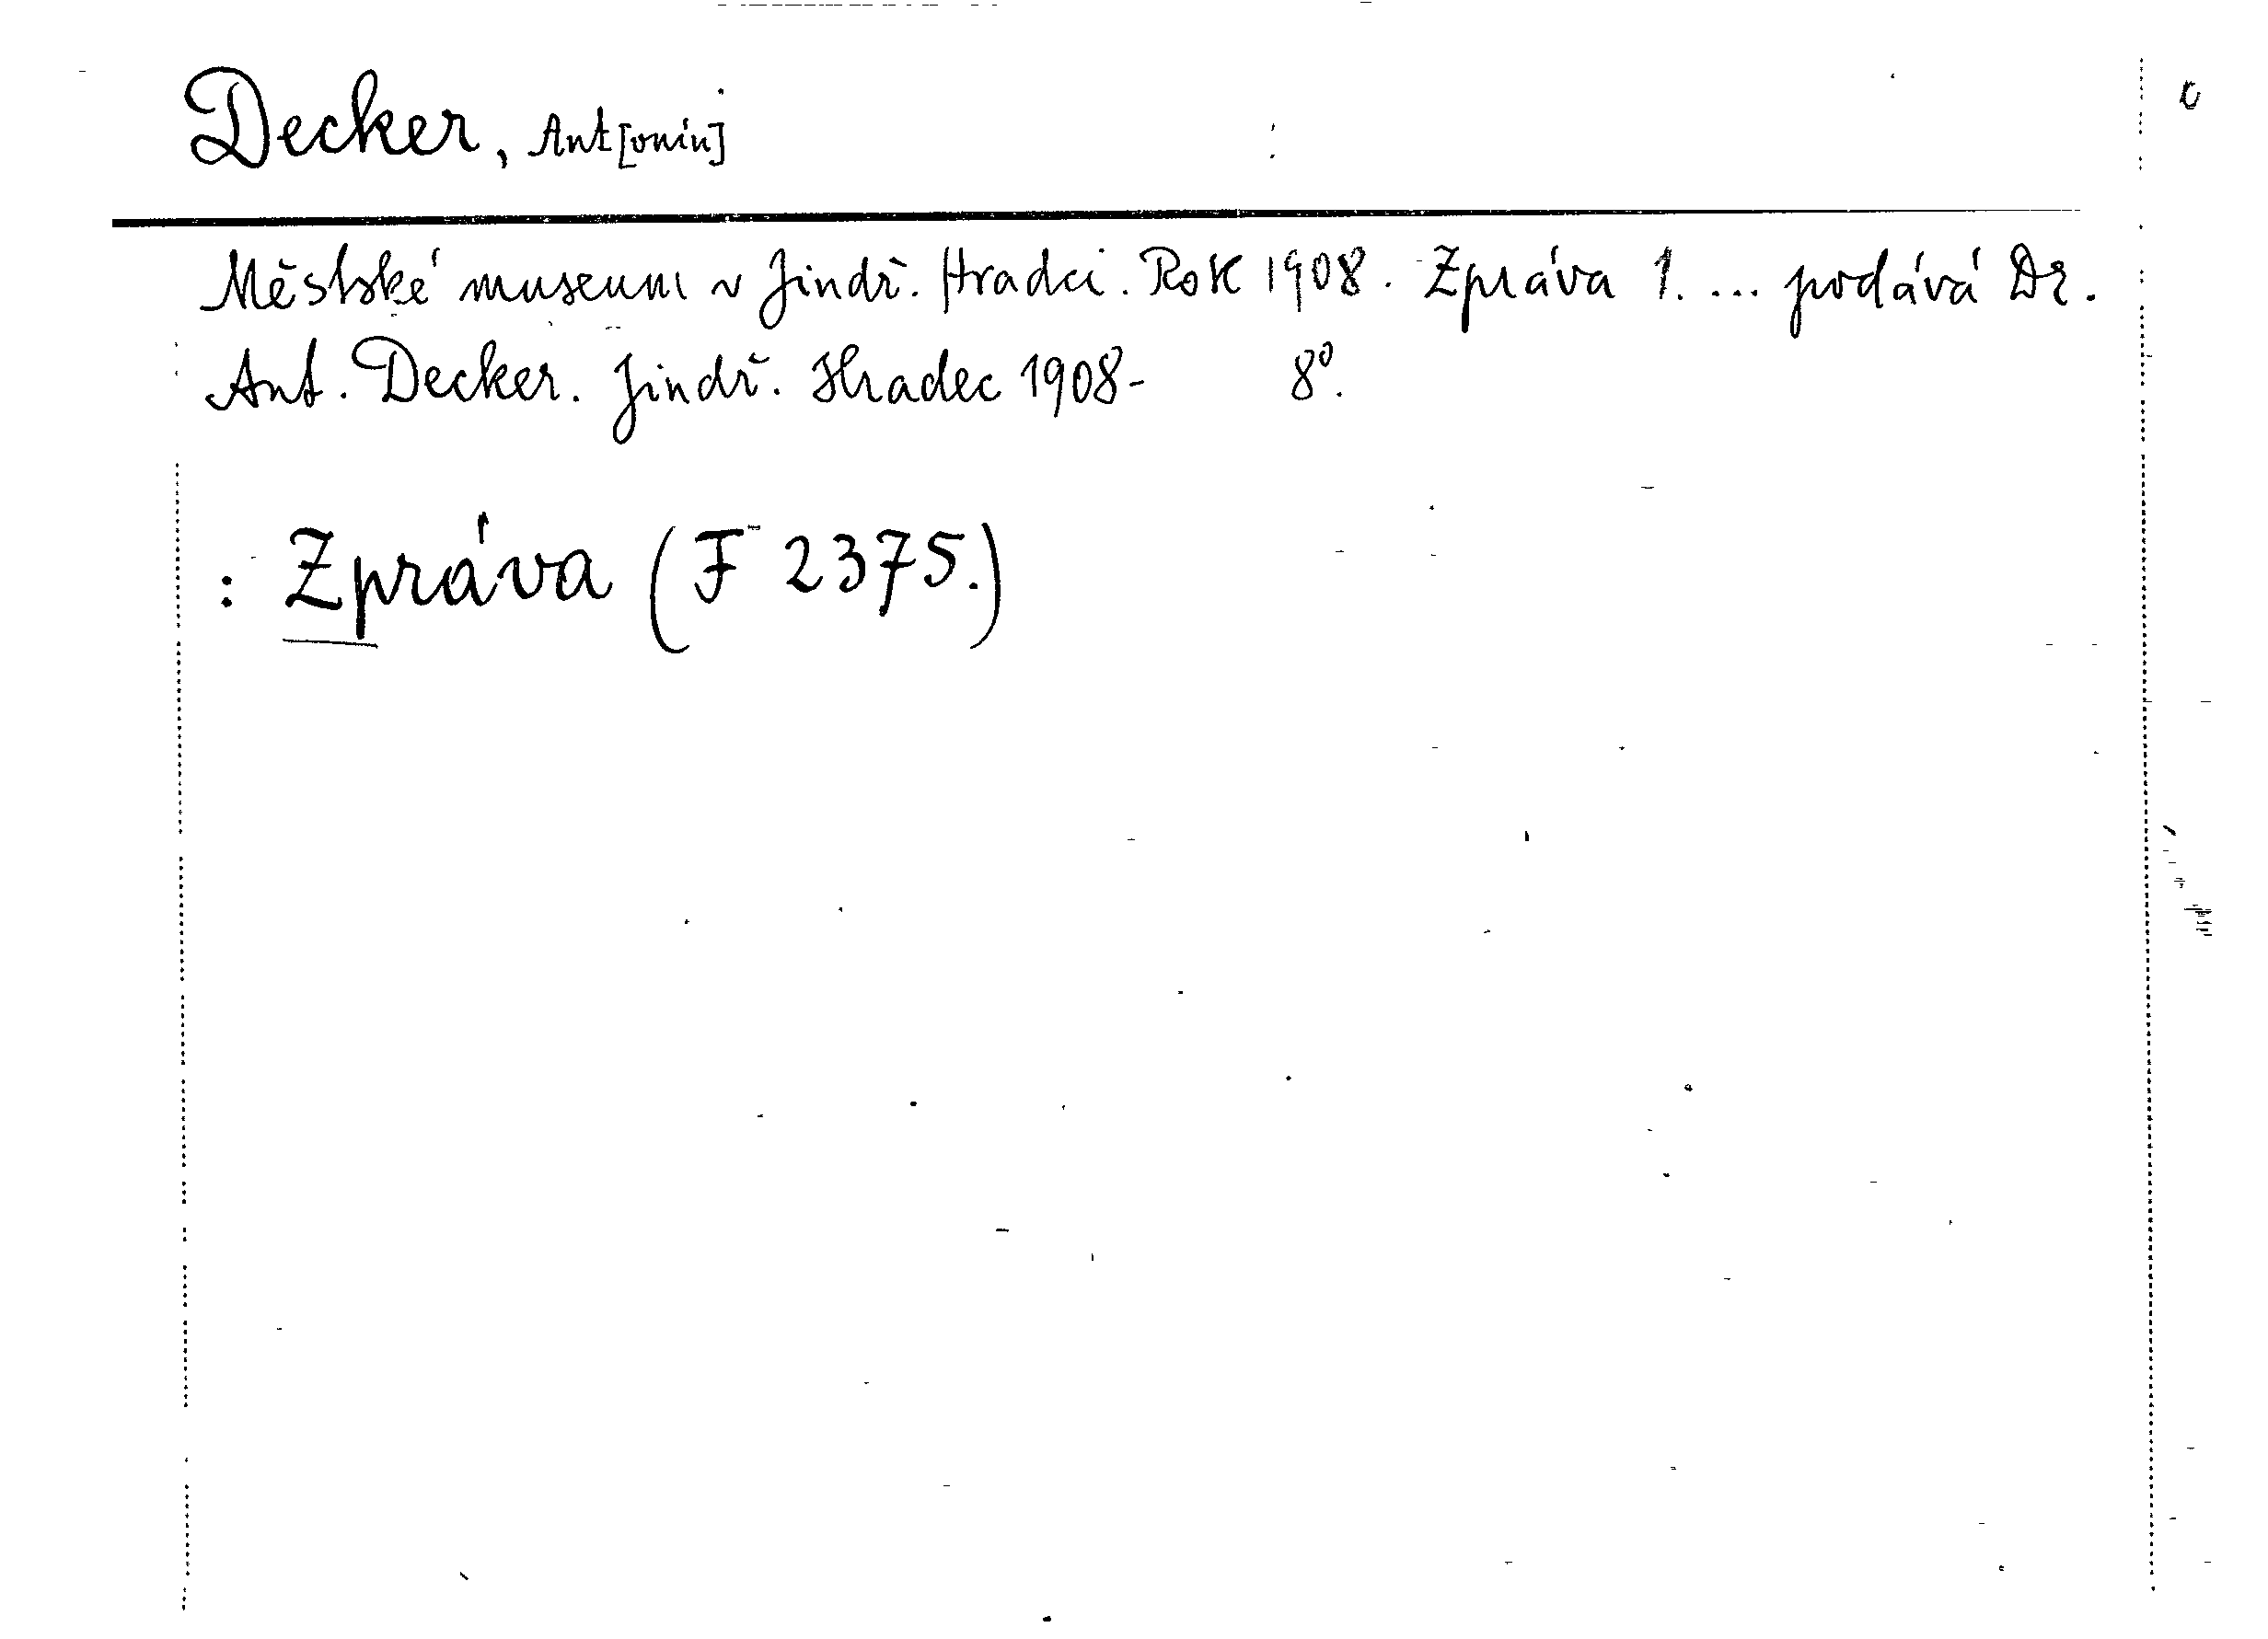 Decker, Ant[onín]
Městské museum v Jindř. Hradci. Rok 1908. Zpráva 1. ... podává Dr.
Ant. Decker. Jindř. Hradec 1908- 8°.
: Zpráva (F 2375.)